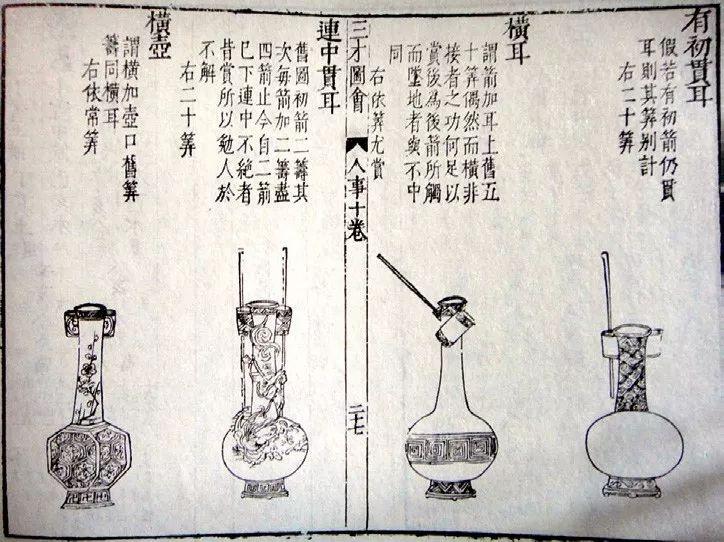 有初貫耳
假若有初箭仍貫
耳則其筭別計
右二十筭
橫耳
謂箭加耳上舊五
十筭偶然而橫非
接者之功何足以
賞後為後箭所觸
而墜地者與不中
同
右依筭尤賞
三才圖會
人事十卷
二七
連中貫耳
舊圖初箭二籌其
次每箭加二籌盡
四箭止今自二箭
已下連中不絕者
昔賞所以勉人於
不解
右二十筭
橫壺
謂橫加壺口舊筭
籌同橫耳
右依常筭